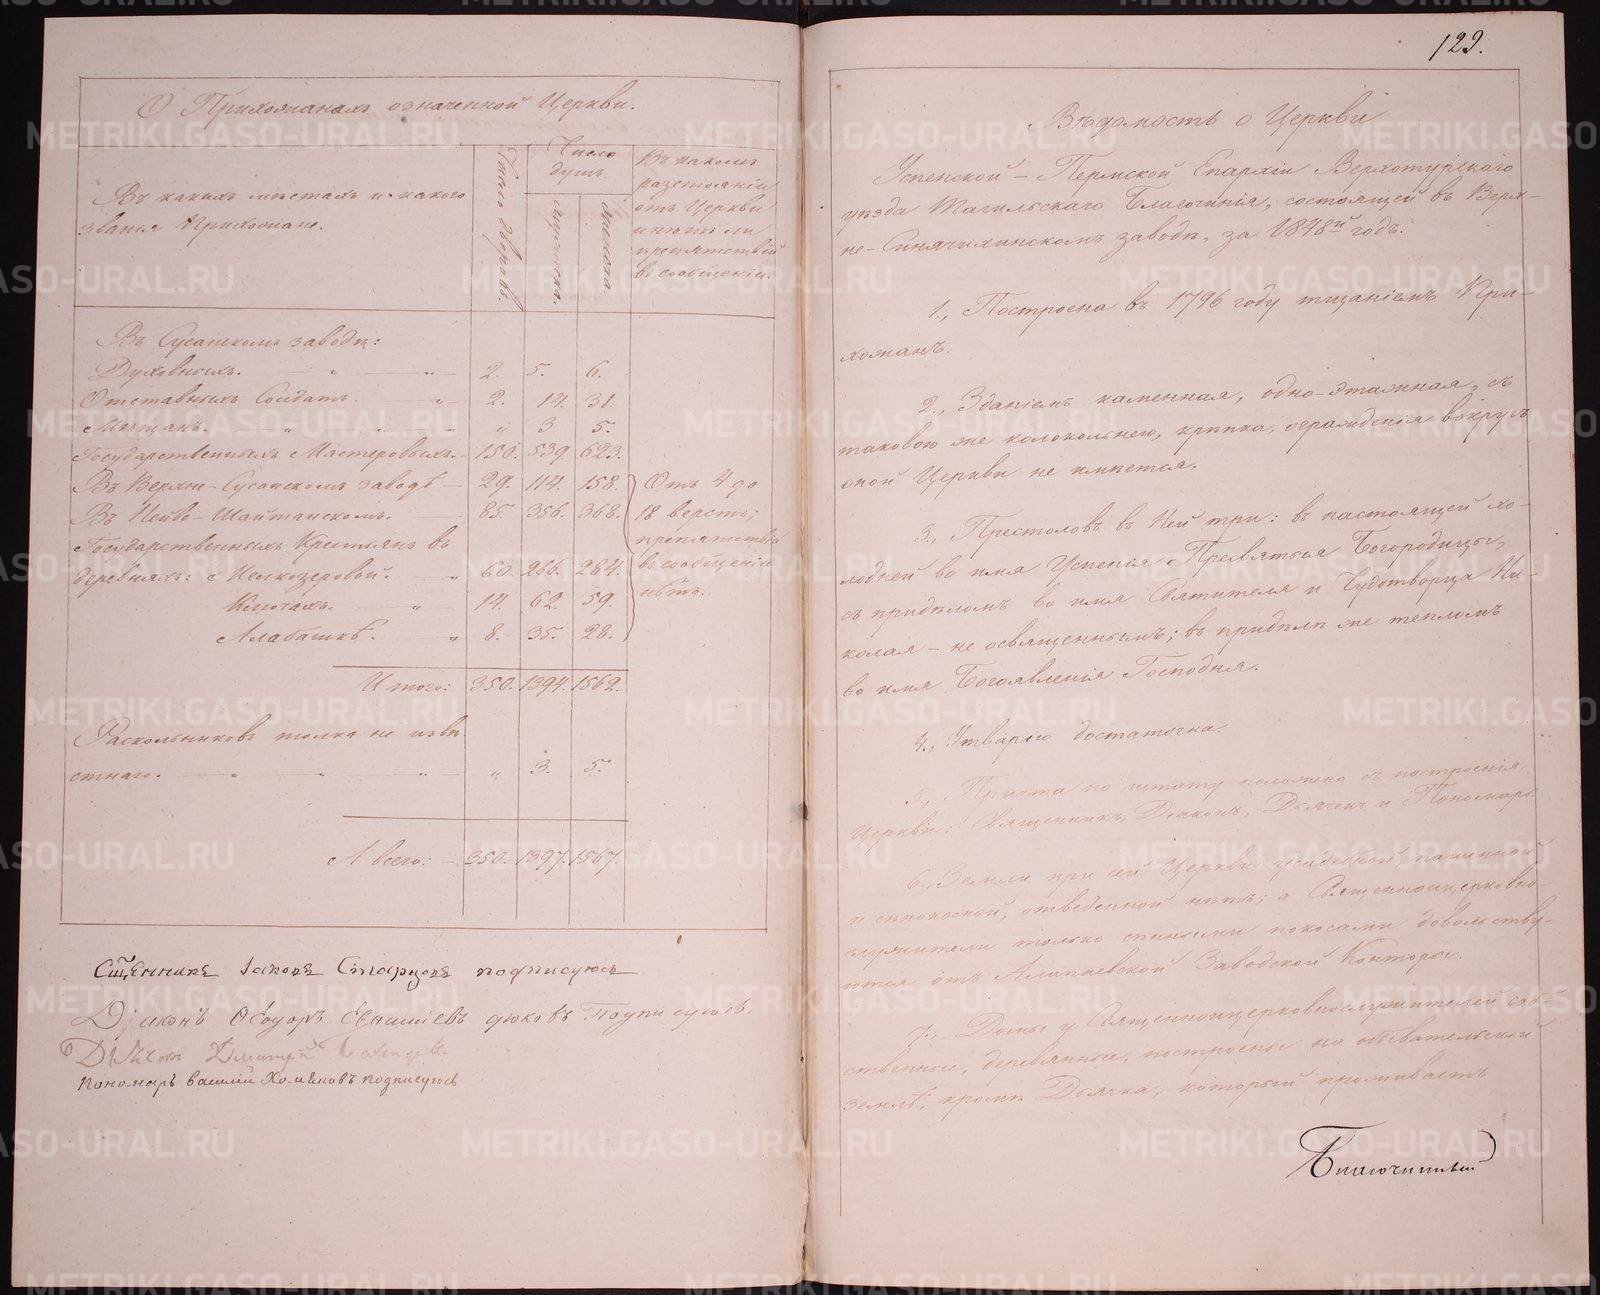 О Прихожанахъ означенной Церкви.
Въ какихъ мѣстахъ и какого
званія Прихожане.
Число дворовъ.
Число
душъ.
мужеска.
женска.
Въ какомъ
разстояніи
отъ Церкви
и нѣтъ ли
препятствій
въ сообщеніи.
Въ Сусанскомъ заводѣ:
Духовныхъ. 2. 5. 6.
Отставныхъ Солдатъ. 2. 14. 31.
Мѣщанъ. „ 3 5.
Государственныхъ Мастеровыхъ. 150. 539. 623.
Въ Верхне-Сусанскомъ заводѣ 29. 114. 158.
Въ Нейво-Шайтанскомъ. 85. 356. 368.
Государственныхъ Крестьянъ въ
деревняхъ: 60. 266. 284.
Ключахъ. 14. 62. 59.
Алабашкѣ. 8. 35. 28.
Отъ 4 до
18 верстъ;
препятствій
въ сообщеніи
нѣтъ.
Итого: 350. 1394. 1562.
Раскольниковъ толка не извѣ-
стнаго. „ 3. 5.
А всего: 350. 1397. 1567.
Сщ҃енникъ Іаковъ Старцовъ подписуюсь
Діаконъ Ѳеодоръ Дюковъ Подписуюсь.
Дьячекъ Дмитрей
Пономарь Василій Хомяковъ подписуюсь
129.
Вѣдомость о Церкви
Успенской – Пермской Епархіи Верхотурскаго
уѣзда Тагильскаго Благочинія, состоящей въ Верх-
не-Синячихинскомъ заводѣ, за 1848й годъ.
1., Построена въ 1796 году тщаніемъ При-
хожанъ.
2., Зданіемъ каменная, одно-этажная, съ
таковою же колокольнею, крѣпка, огражденія вокругъ
оной Церкви не имѣется.
3., Престоловъ въ Ней три: въ настоящей хо-
лодней во имя Успенія Пресвятыя Богородицы,
съ придѣломъ во имя Святителя и Чудотворца Ни-
колая – не освященнымъ; въ придѣлѣ же тепломъ
во имя Богоявленія Господня.
4., Утварію достаточна.
5., Причта по штату положено съ построенія
Церкви: Священникъ, Діаконъ, Дьячекъ и Пономарь
6., Земли при сей Церкви усадебной, пашенной
и сѣнокосной, отведенной нѣтъ; а Священноицерковно-
служители только сѣнными покосами довольству-
ются отъ Алапаевской Заводской Конторы.
7., Домы у Священноицерковнослужителей соб-
ственные, деревянные, построены на обывательской
землѣ, кромѣ Дьячка, который проживаетъ
Благочинный
METRIKI.GASO-URAL.RU